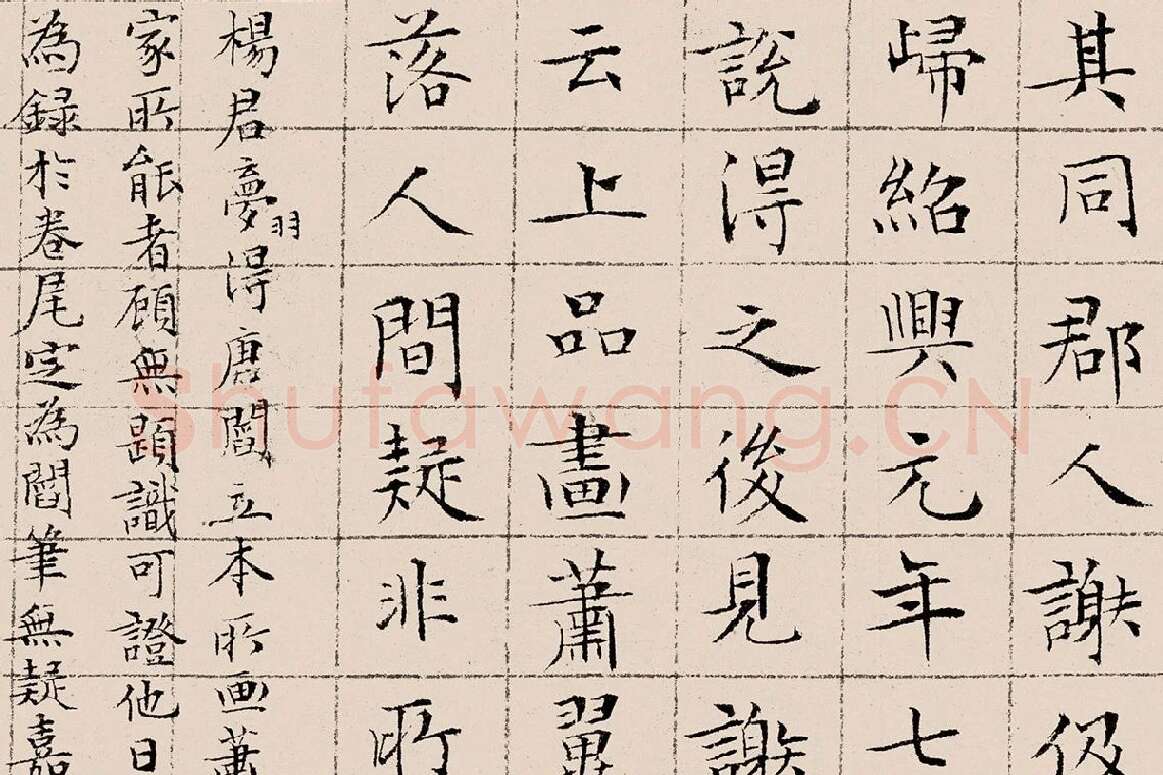 其同郡人謝伋
歸紹興元年七
說得之後見謝
云上品畫蕭翼
落人間疑非所
楊君夢羽得唐閻立本所画蕭
家所能者顧無題識可證他日
為録於卷尾定為閻筆無疑嘉
shufawang.CN